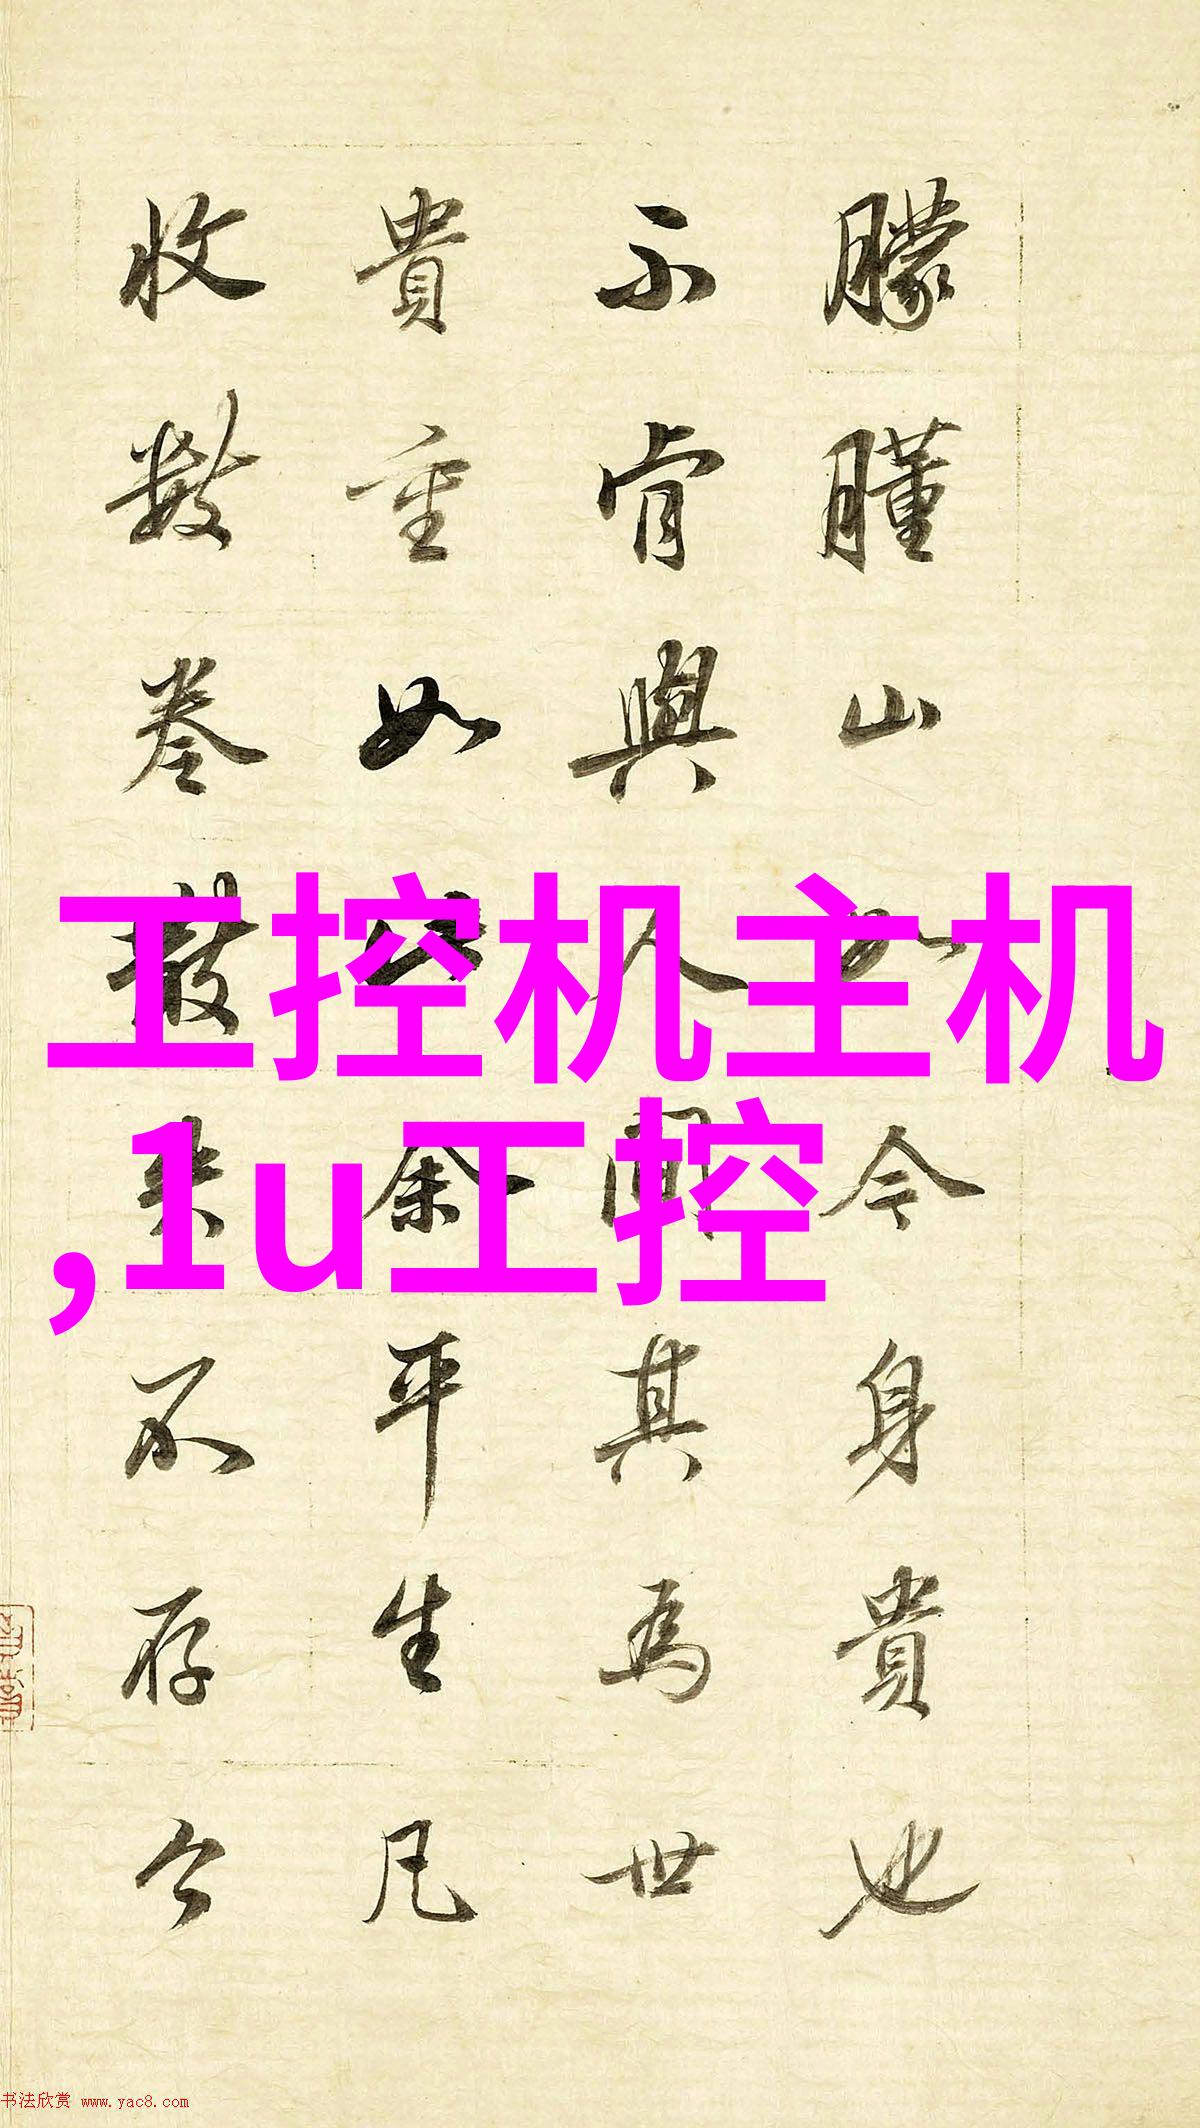 朦朣山如今身貴也
不肯與人間其為世
貴重如此余平生凡
收數卷散失不存今
工控机主机
,1u工控
书法欣赏 www.yac8.com